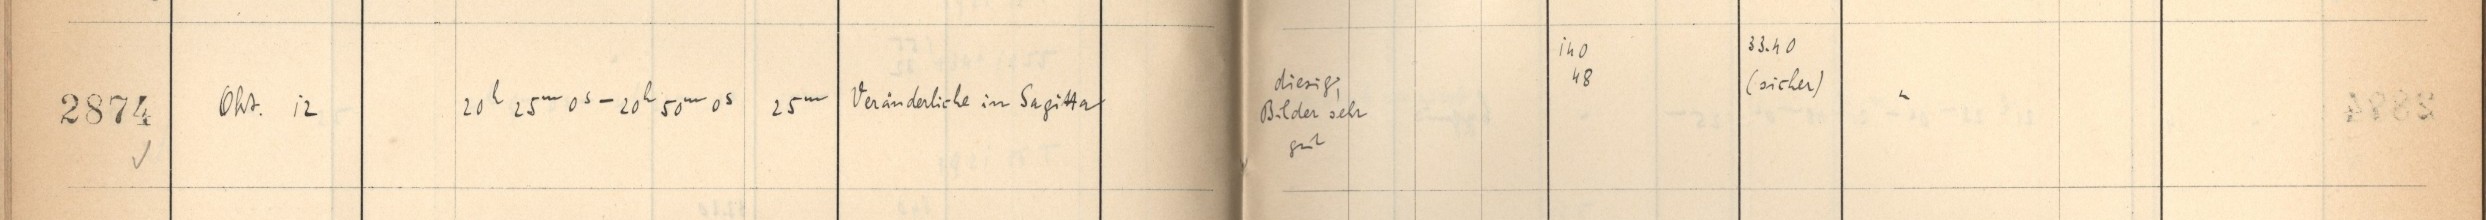 2874 Okt. 12 20h 25m 0s – 20h 50m 0s 25m Veränderliche in Sagitta
diesig,
Bilder sehr
gut
140
48
33.40
(sicher)
"